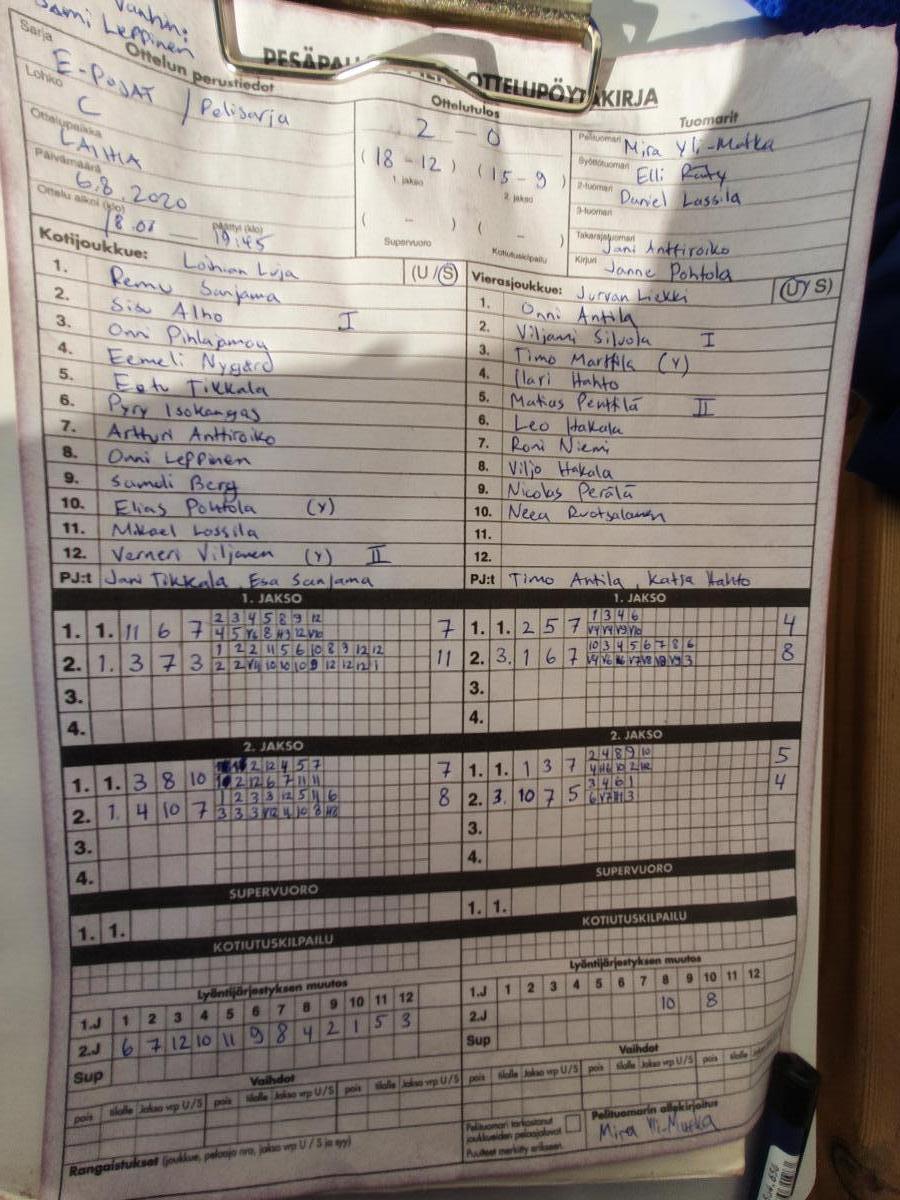 Vanhm:
Sami Leppinen
PESÄPAL
OTTELUPÖYTÄKIRJA
Ottelun perustiedot
Sarja
E-POJAT / Pelisarja
Lohko
C
Ottelupaikka
LAIHIA
Päivämäärä
6.8.2020
Ottelu alkoi (klo) päättyi (klo)
18.01 — 19.45
Ottelutulos
2 – 0
(18 – 12) (15 – 9)
1. jakso 2. jakso
( – ) ( – )
Supervuoro Kotiutuskilpailu
Tuomarit
Pelituomari Mira Yli-Matka
Syöttötuomari Elli Räty
2-tuomari Daniel Lassila
3-tuomari
Takarajatuomari Jani Anttiroiko
Kirjuri Janne Pohtola
Kotijoukkue: Laihian Luja (U / S)
1. Remu Sanjama
2. Sisu Alho I
3. Onni Pihlajamay
4. Eemeli Nygård
5. Eetu Tikkala
6. Pyry Isokangas
7. Artturi Anttiroiko
8. Onni Leppinen
9. Sameli Berg
10. Elias Pohtola (Y)
11. Mikael Lassila
12. Verneri Viljanen (Y) II
PJ:t Jani Tikkala, Esa Sanjama
Vierasjoukkue: Jurvan Liekki (U / S)
1. Onni Antila
2. Viljami Silvola I
3. Timo Marttila (Y)
4. Ilari Hahto
5. Matias Penttilä II
6. Leo Hakala
7. Roni Niemi
8. Viljo Hakala
9. Nicolas Perälä
10. Neea Ruotsalainen
11.
12.
PJ:t Timo Antila, Katja Hahto
1. JAKSO
2 3 4 5 8 9 12
1. 1. 11 6 7 7
1 2 2 11 5 6 10 8 9 12 12
2. 1. 3 7 3 11
3.
4.
1. JAKSO
1 3 4 6
1. 1. 2 5 7 4
10 3 4 5 6 7 8 6
2. 3. 1 6 7 8
3.
4.
2. JAKSO
1. 1. 3 8 10 7
1 2 3 3 12 5 11 6
2. 1. 4 10 7 8
3.
4.
2. JAKSO
2 4 8 9 10
1. 1. 1 3 7 5
3 4 6 1
2. 3. 10 7 5 4
3.
4.
SUPERVUORO
1. 1.
SUPERVUORO
1. 1.
KOTIUTUSKILPAILU
KOTIUTUSKILPAILU
Lyöntijärjestyksen muutos
1.J 1 2 3 4 5 6 7 8 9 10 11 12
2.J 6 7 12 10 11 9 8 4 2 1 5 3
Sup
Lyöntijärjestyksen muutos
1.J 1 2 3 4 5 6 7 8 9 10 11 12
2.J 10 8
Sup
Vaihdot
pois tilalle Jakso vrp U/S pois tilalle Jakso vrp U/S pois tilalle Jakso vrp U/S
Vaihdot
pois tilalle Jakso vrp U/S pois tilalle Jakso vrp U/S pois tilalle Jakso
Rangaistukset (joukkue, pelaaja nro, jakso vrp U / S ja syy)
Pelituomari tarkastanut
joukkueiden pelaajaluvat
Puutteet merkitty erikseen.
Pelituomarin allekirjoitus
Mira Yli-Matka